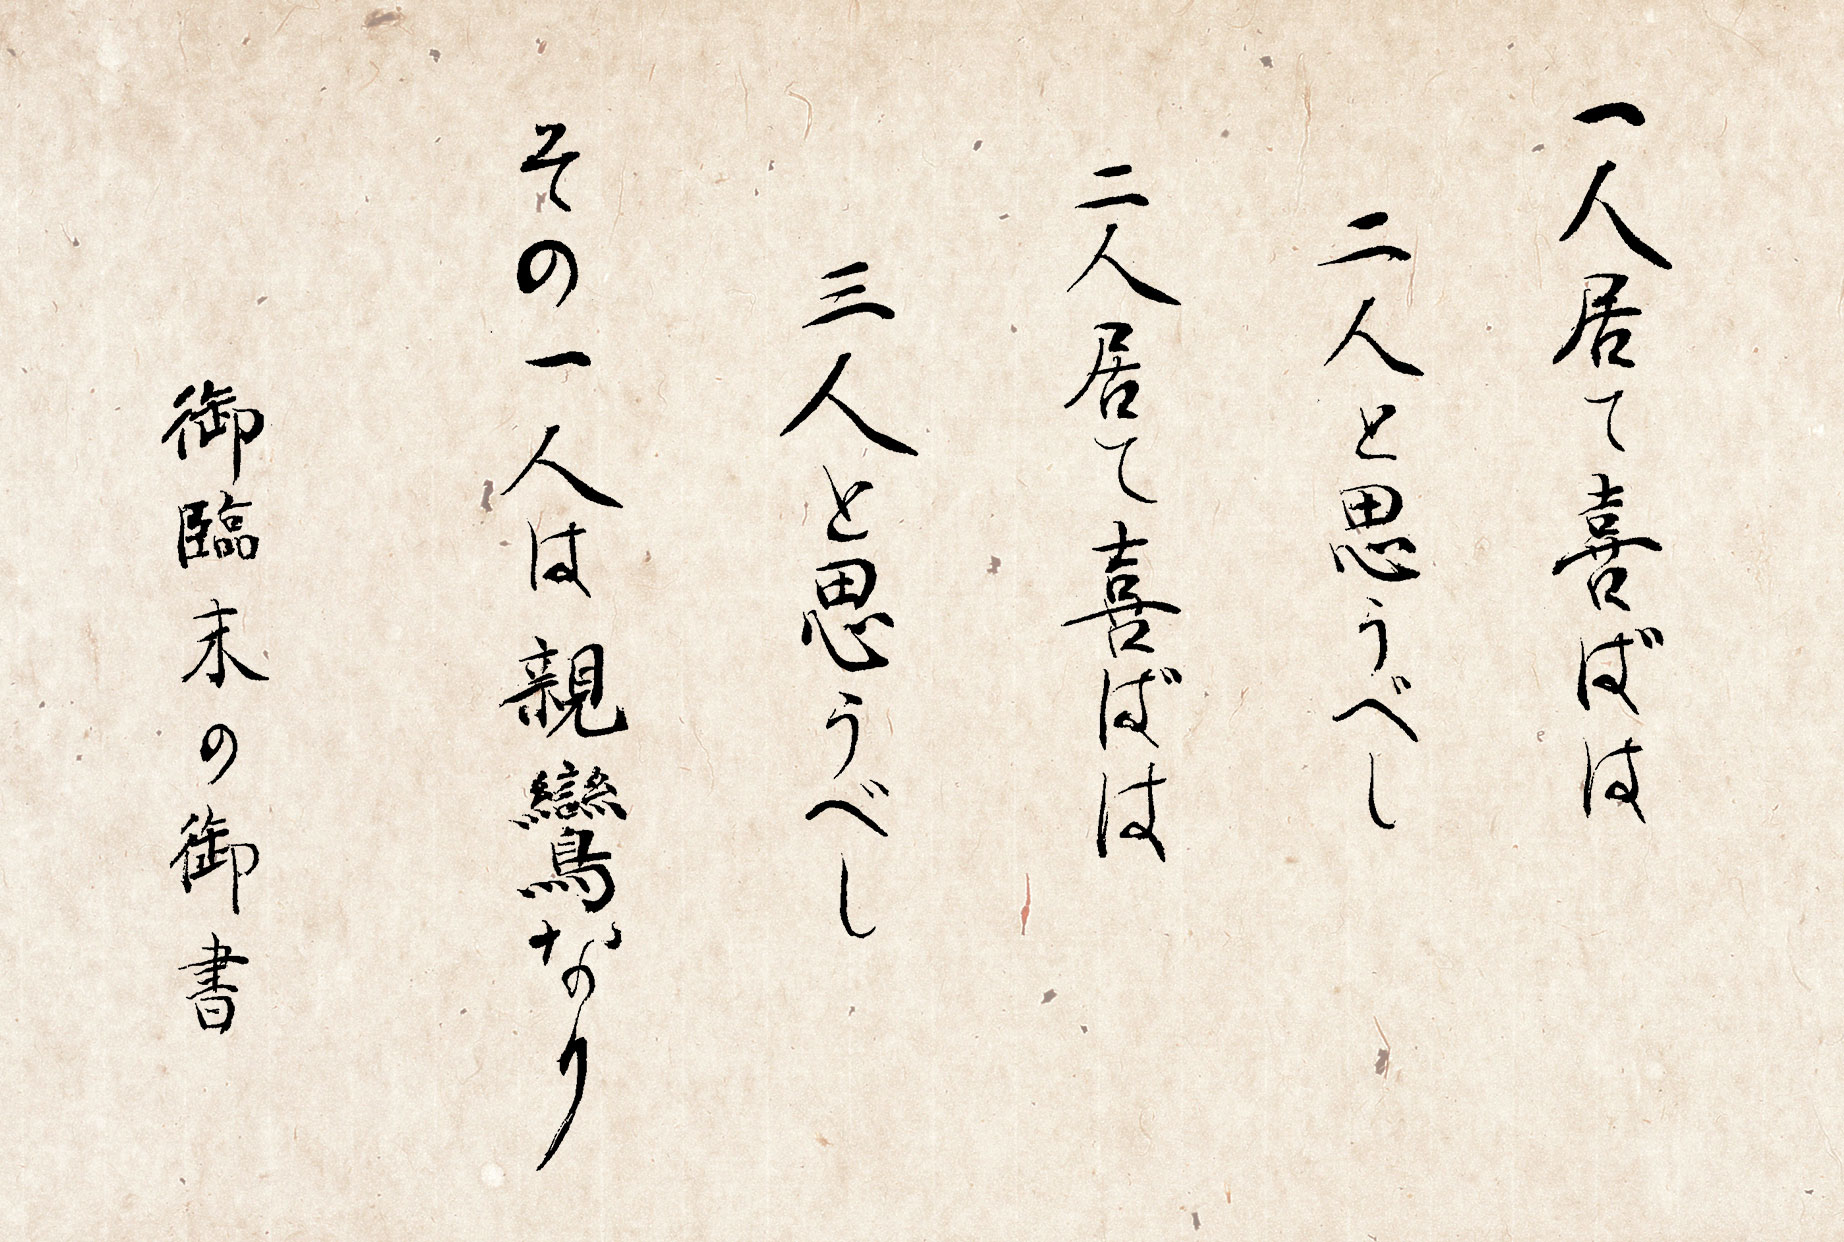 一人居て喜ばは
二人と思うべし
二人居て喜ばは
三人と思うべし
その一人は親鸞なり
御臨末の御書